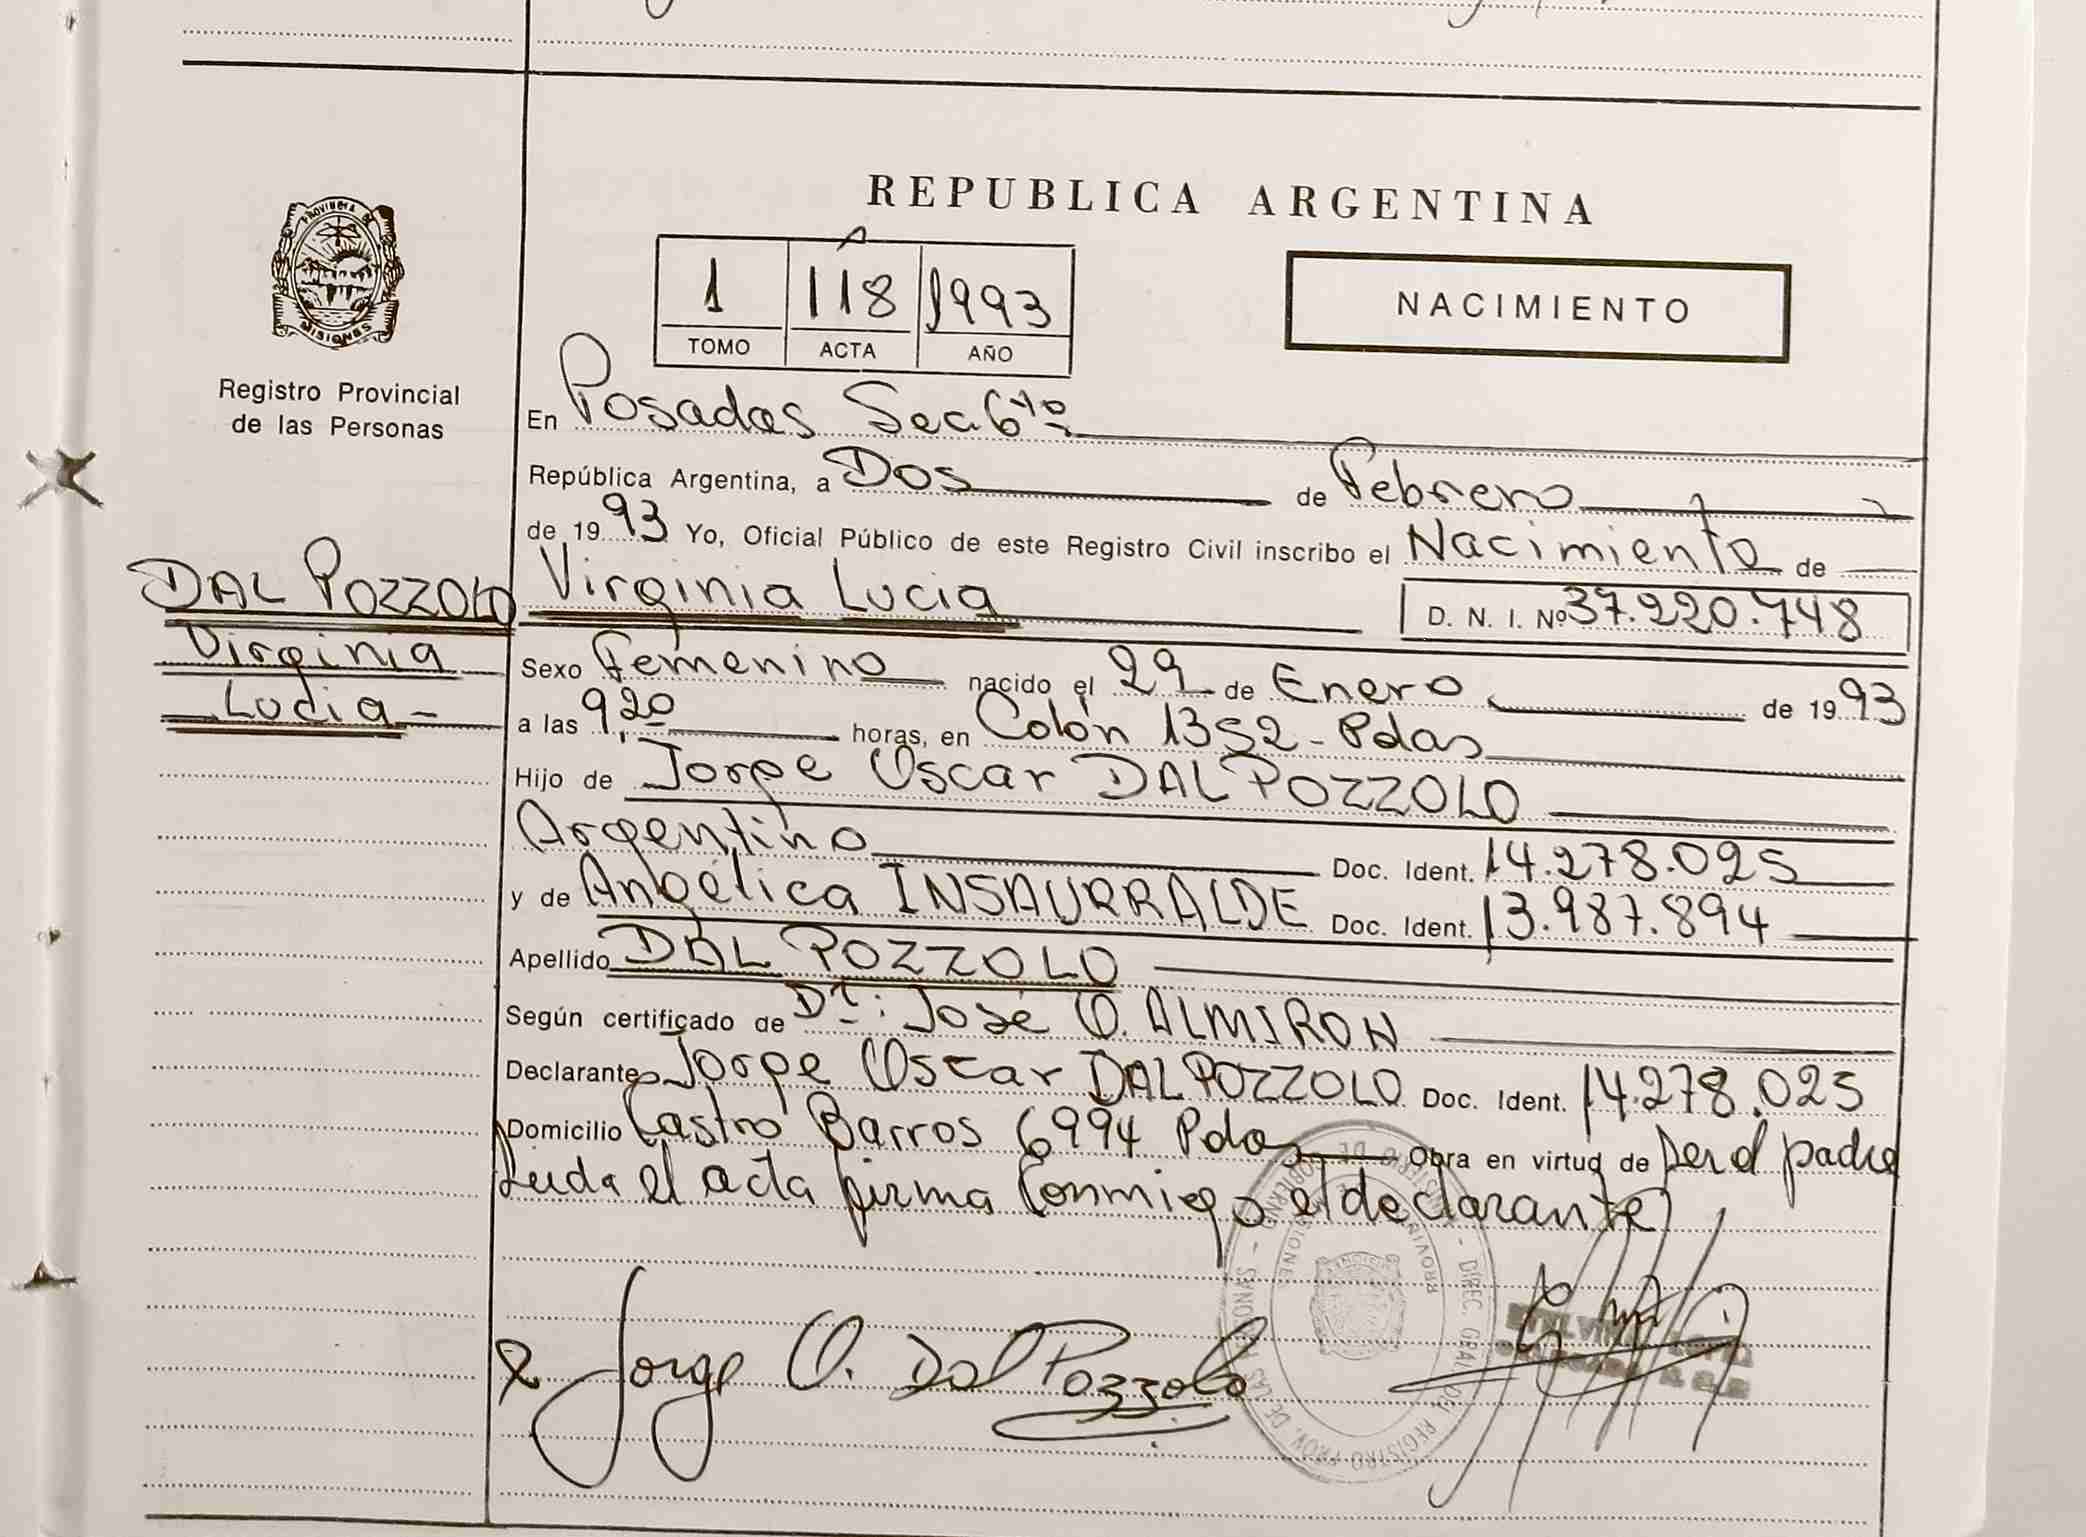 REPUBLICA ARGENTINA
PROVINCIA DE
MISIONES
Registro Provincial
de las Personas
1 118 1993
TOMO ACTA AÑO
NACIMIENTO
En Posadas Sec 6ta
República Argentina, a Dos de Febrero
de 1993 Yo, Oficial Público de este Registro Civil inscribo el Nacimiento de
DAL POZZOLO
Virginia
Lucia
Virginia Lucia D. N. I. Nº 37.220.748
Sexo Femenino nacido el 29 de Enero de 1993
a las 9,20 horas, en Colón 1352 - Pdas
Hijo de Jorge Oscar DAL POZZOLO
Argentino Doc. Ident. 14.278.025
y de Angélica INSAURRALDE Doc. Ident. 13.987.894
Apellido DAL POZZOLO
Según certificado de Dr.: José O. ALMIRON
Declarante Jorge Oscar DAL POZZOLO Doc. Ident. 14.278.025
Domicilio Castro Barros 6994 Pdas Obra en virtud de ser el padre
Leida el acta firma conmigo el declarante
Jorge O. Dal Pozzolo